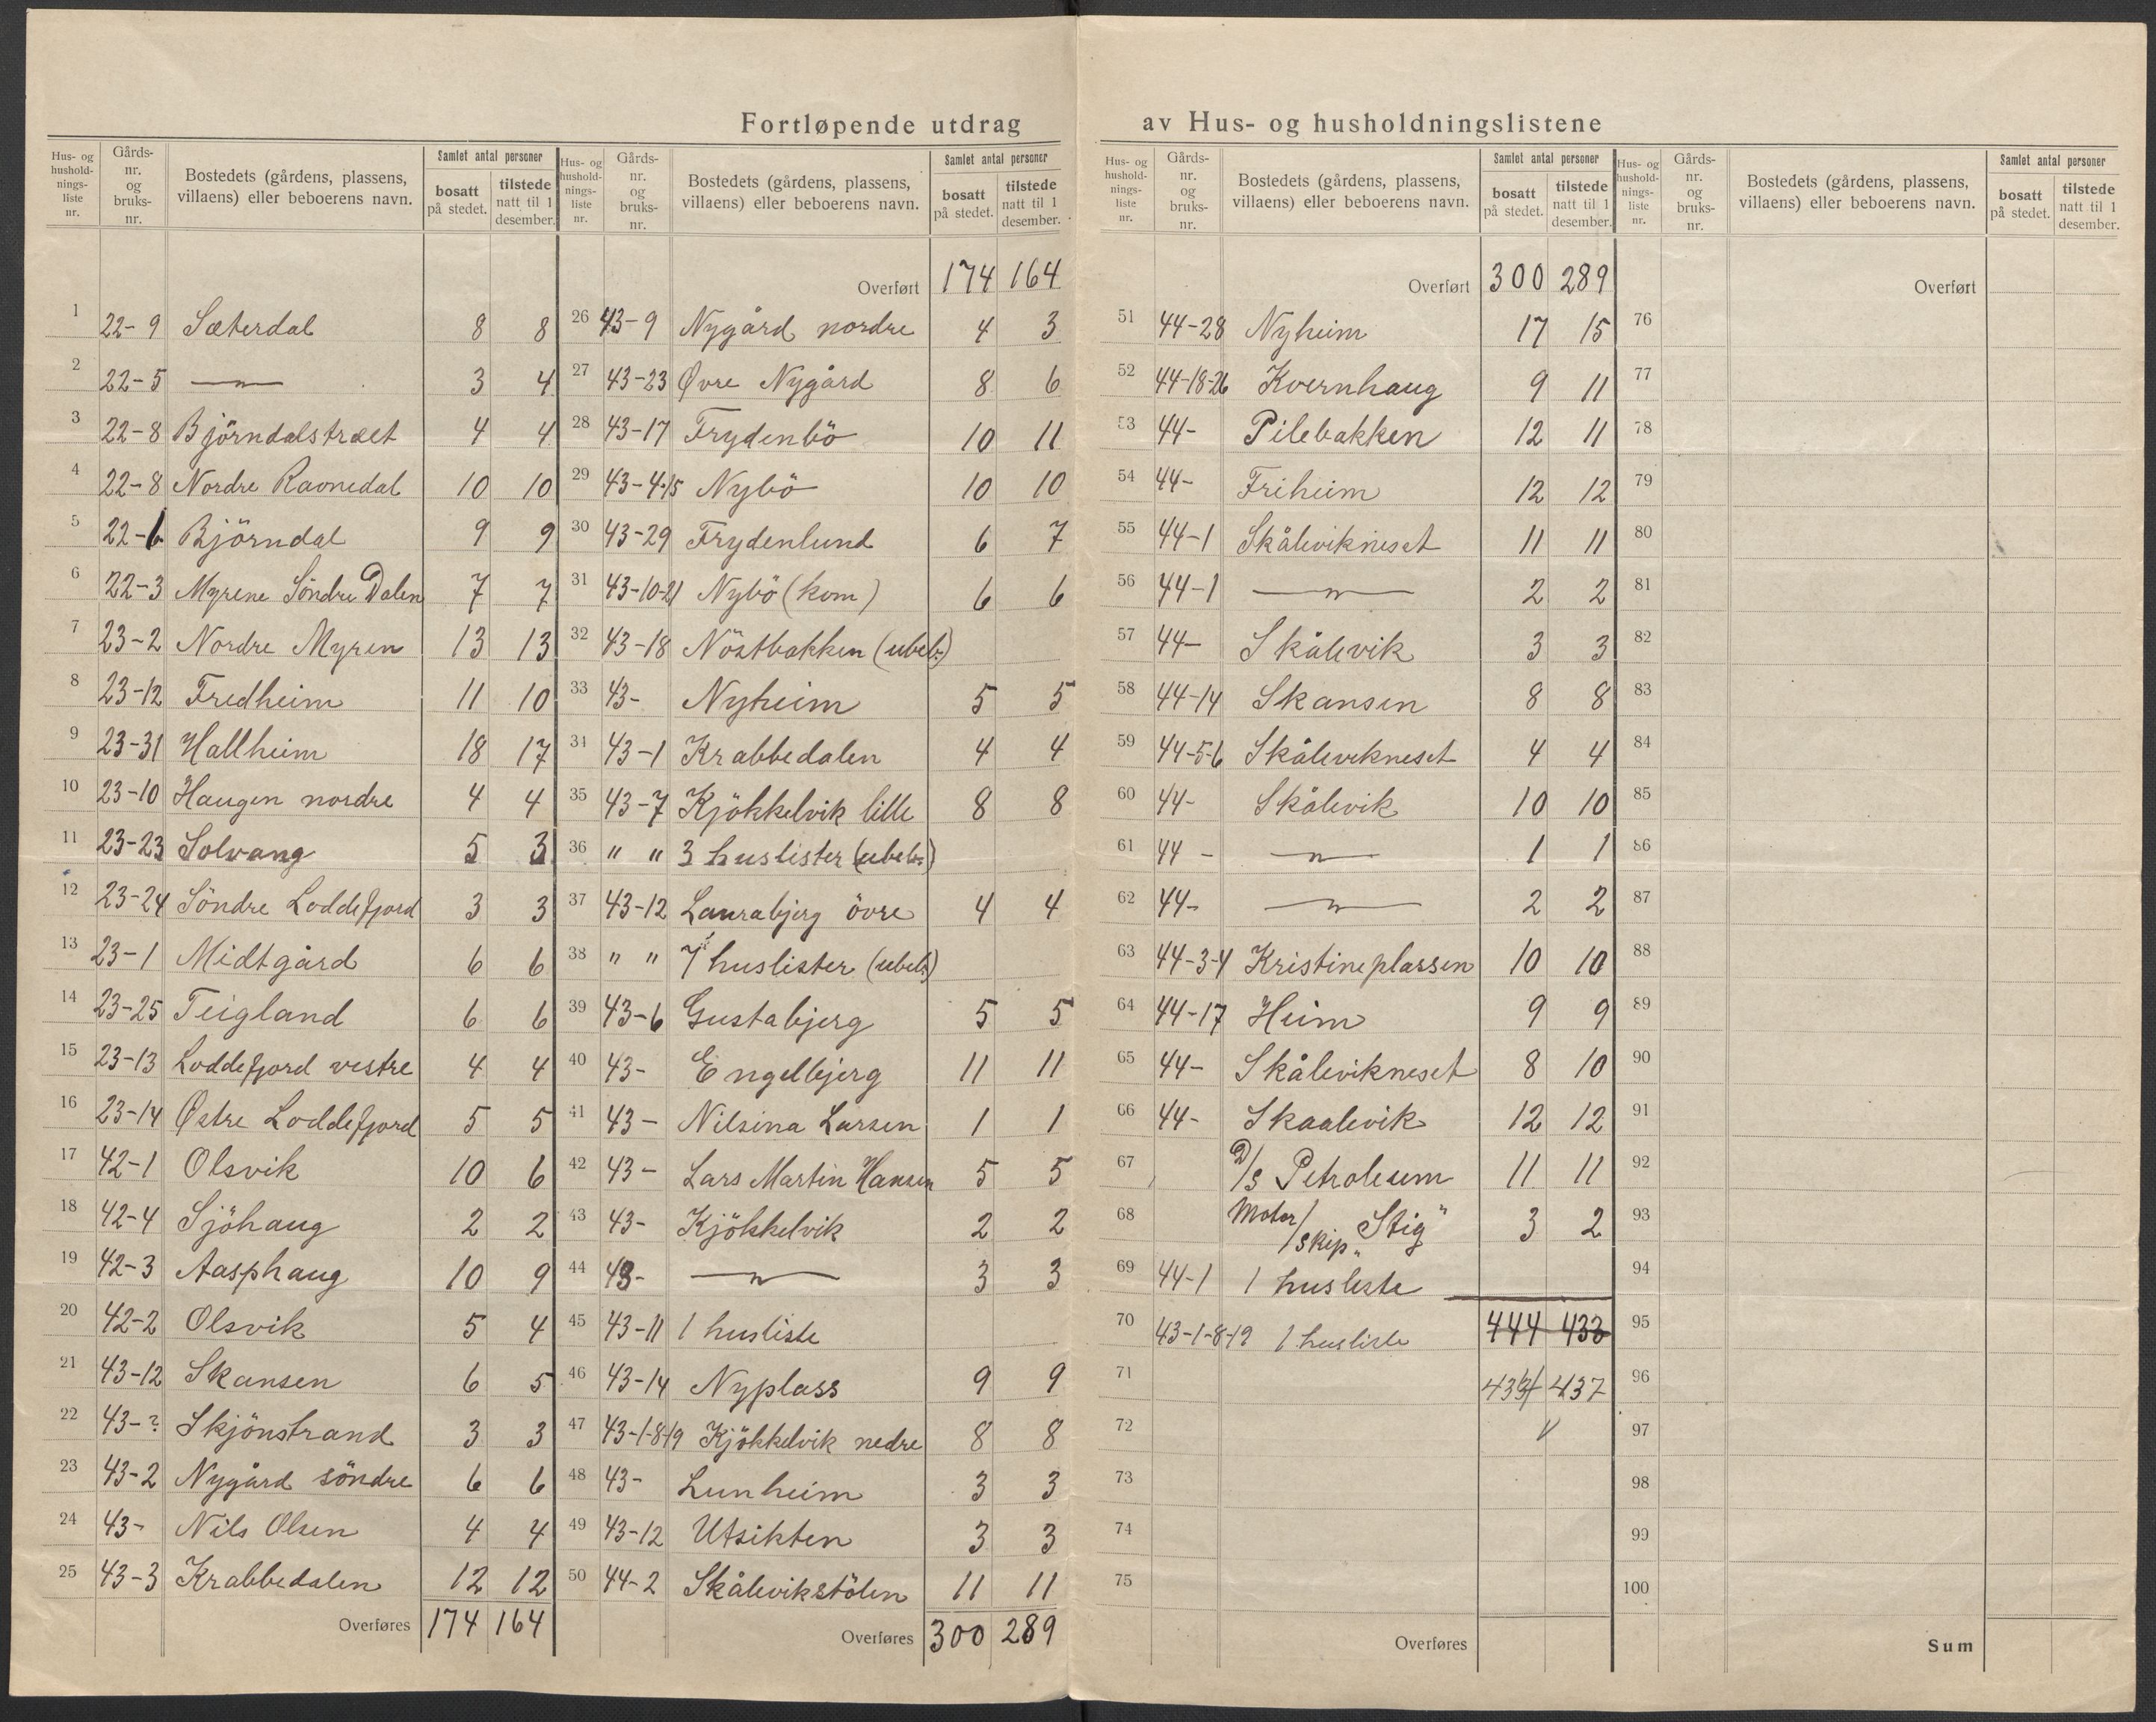 Fortløpende utdrag av Hus- og husholdningslistene
Hus- og hushold-nings-liste nr. | Gårds-nr. og bruks-nr. | Bostedets (gårdens, plassens, villaens) eller beboerens navn. | Samlet antal personer | bosatt på stedet. | tilstede natt til 1 desember.
1 22-9 Sæterdal 8 8
2 22-5 —"— 3 4
3 22-8 Björndalstræet 4 4
4 22-8 Nordre Ravnedal 10 10
5 22-6 Björndal 9 9
6 22-3 Myrene Söndre Dalen 7 7
7 23-2 Nordre Myren 13 13
8 23-12 Fredheim 11 10
9 23-31 Hallheim 18 17
10 23-10 Haugen nordre 4 4
11 23-23 Solvang 5 3
12 23-24 Söndre Loddefjord 3 3
13 23-1 Midtgård 6 6
14 23-25 Teigland 6 6
15 23-13 Loddefjord vestre 4 4
16 23-14 Østre Loddefjord 5 5
17 42-1 Olsvik 10 6
18 42-4 Sjöhaug 2 2
19 42-3 Aasphaug 10 9
20 42-2 Olsvik 5 4
21 43-12 Skansen 6 5
22 43-? Skjönstrand 3 3
23 43-2 Nygård söndre 6 6
24 43- Nils Olsen 4 4
25 43-3 Krabbedalen 12 12
Overføres 174 164
Hus- og hushold-nings-liste nr. | Gårds-nr. og bruks-nr. | Bostedets (gårdens, plassens, villaens) eller beboerens navn. | Samlet antal personer | bosatt på stedet. | tilstede natt til 1 desember.
Overført 174 164
26 43-9 Nygård nordre 4 3
27 43-23 Øvre Nygård 8 6
28 43-17 Frydenbö 10 11
29 43-4-15 Nybö 10 10
30 43-29 Frydenlund 6 7
31 43-10-21 Nybö (kom) 6 6
32 43-18 Nöstbakken (ubeb.)
33 43- Nyheim 5 5
34 43-1 Krabbedalen 4 4
35 43-7 Kjökkelvik lille 8 8
36 " " 3 huslister (ubeb.)
37 43-12 Laurabjerg övre 4 4
38 " " 7 huslister (ubeb.)
39 43-6 Gustabjerg 5 5
40 43- Engelbjerg 11 11
41 43- Nilsina Larsen 1 1
42 43- Lars Martin Hansen 5 5
43 43- Kjökkelvik 2 2
44 43- —"— 3 3
45 43-11 1 husliste
46 43-14 Nyplass 9 9
47 43-1-8-19 Kjökkelvik nedre 8 8
48 43- Lunheim 3 3
49 43-12 Utsikten 3 3
50 44-2 Skålevikstölen 11 11
Overføres 300 289
Hus- og hushold-nings-liste nr. | Gårds-nr. og bruks-nr. | Bostedets (gårdens, plassens, villaens) eller beboerens navn. | Samlet antal personer | bosatt på stedet. | tilstede natt til 1 desember.
Overført 300 289
51 44-28 Nyheim 17 15
52 44-18-26 Kvernhaug 9 11
53 44- Pilebakken 12 11
54 44- Friheim 12 12
55 44-1 Skålevikneset 11 11
56 44-1 —"— 2 2
57 44- Skålevik 3 3
58 44-14 Skansen 8 8
59 44-5-6 Skålevikneset 4 4
60 44- Skålevik 10 10
61 44- —"— 1 1
62 44- —"— 2 2
63 44-3-4 Kristineplassen 10 10
64 44-17 Heim 9 9
65 44- Skålevikneset 8 10
66 44- Skaalevik 12 12
67 D/S Petroleum 11 11
68 Motor/skip "Stig" 3 2
69 44-1 1 husliste
70 43-1-8-19 1 husliste 444 433
71 434 437
72 V
73
74
75
Overføres
Hus- og hushold-nings-liste nr. | Gårds-nr. og bruks-nr. | Bostedets (gårdens, plassens, villaens) eller beboerens navn. | Samlet antal personer | bosatt på stedet. | tilstede natt til 1 desember.
Overført
76
77
78
79
80
81
82
83
84
85
86
87
88
89
90
91
92
93
94
95
96
97
98
99
100
Sum